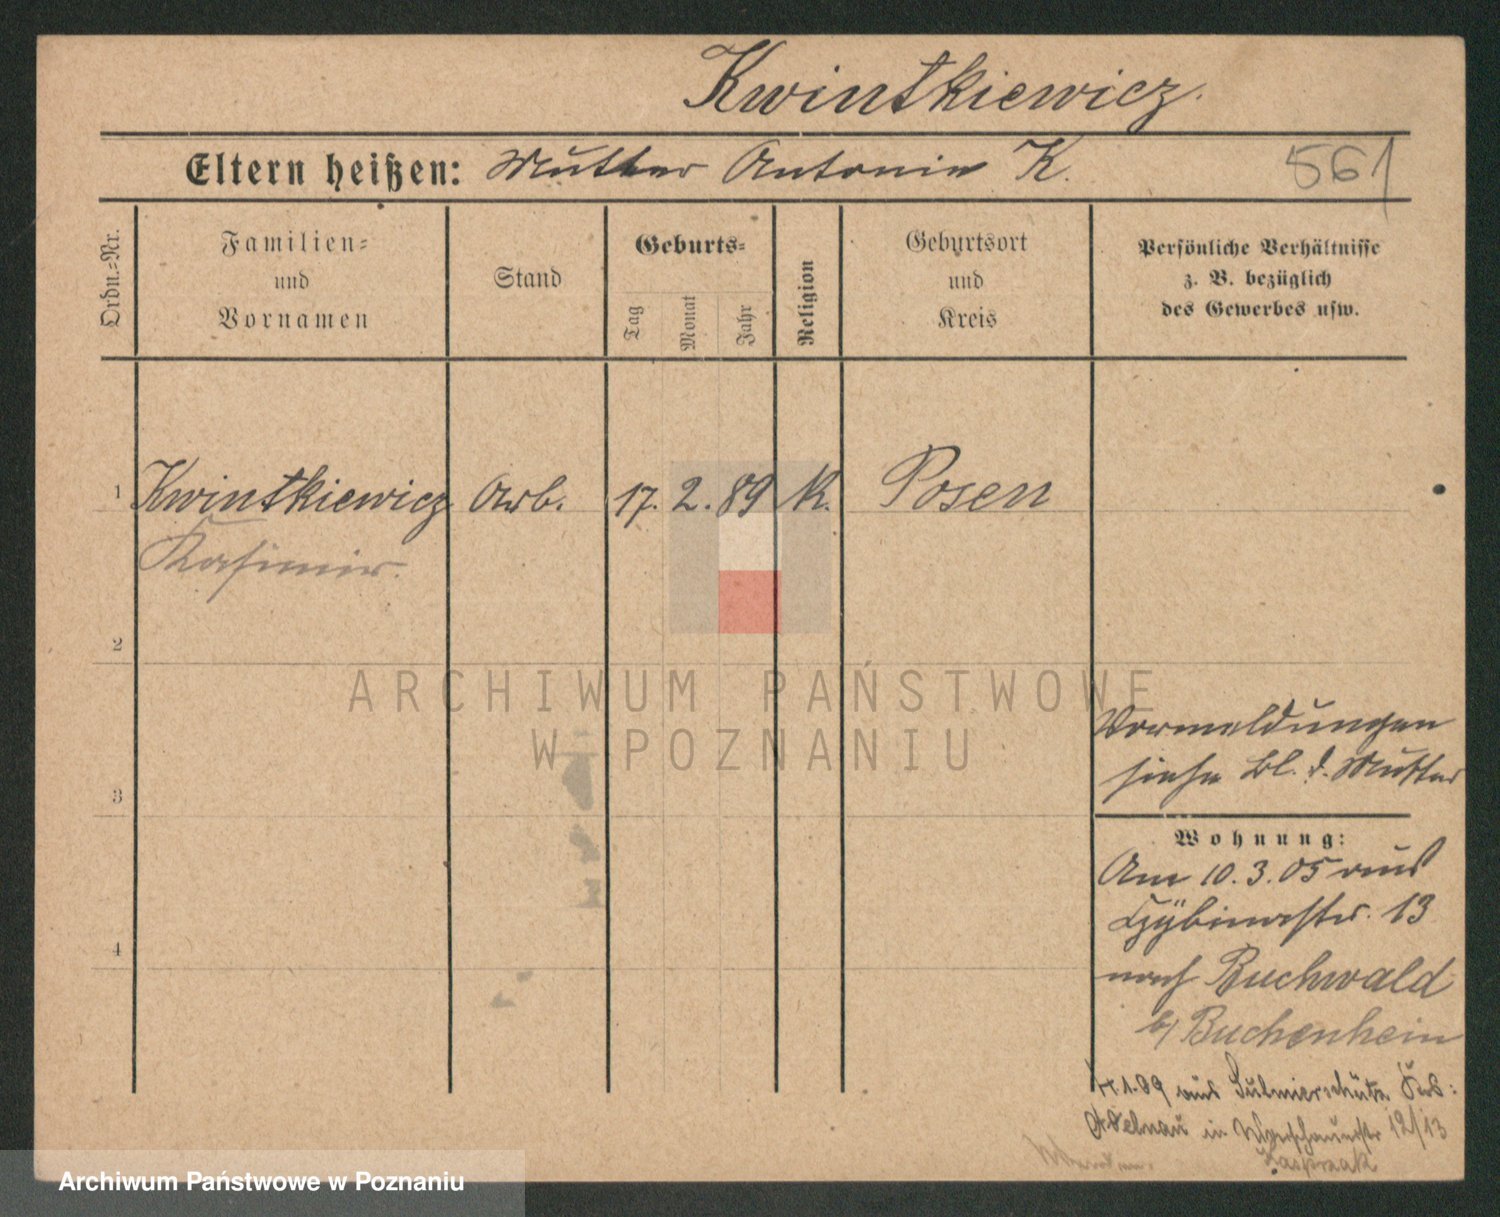 Kwintkiewicz.
Eltern heißen: Mutter Antonie K.
561
Ordn.=Nr.
Familien=
und
Vornamen
Stand
Geburts=
Tag
Monat
Jahr
Religion
Geburtsort
und
Kreis
Persönliche Verhältnisse
z. B. bezüglich
des Gewerbes usw.
1 Kwintkiewicz Arb. 17. 2. 89 K. Posen
Kasimir.
2
ARCHIWUM PAŃSTWOWE
W POZNANIU
Vormeldungen
siehe Bl. d. Mutter
3
Wohnung:
Am 10. 3. 05 aus
13
4
nach Buchwald
b/ Buchenhein
aus Sulmierschütz Krs:
Adelnau in 12/13
Kasprzak
Archiwum Państwowe w Poznaniu